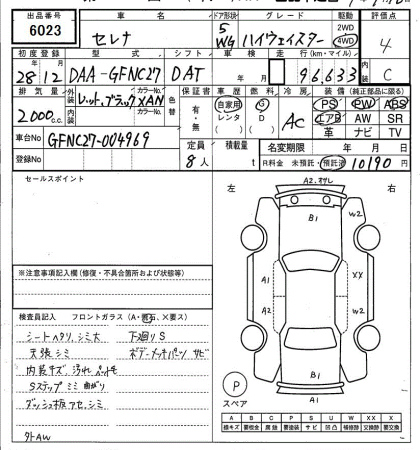 出品番号 車名 ドア形状 グレード 駆動 評価点
6023 セレナ 5 WG ハイウェイスター 2WD 4WD 4
初度登録 型式 シフト 車検 走行(km・マイル) 内装
28年12月 DAA-GFNC27 DAT 年 月 96,633 C
排気量 外装 レッド,ブラック カラーNo XAN 色替 保証書 車歴 燃料 冷房 装備(純正部品に限る)
2000c.c. 内装 カラーNo 有・無 自家用 レンタ G D AC PS PW ABS
エアB AW SR
革 ナビ TV
車台No GFNC27-004969 定員 積載量 名変期限 年 月 日
登録No 8人 t R料金 未預託・預託済 10190円
セールスポイント
左 右
A2.
B1
W2 W2
A1 XX
A2
B1
A1
※注意事項記入欄(修復・不具合箇所および状態等)
検査員記入 フロントガラス(A・飛石、×要ス)
シートヘタリ,シミ大 下廻りS
天張シミ ボデーメッキパーツ サビ
内装キズ,汚れ
Sステップ シミ 曲がり
ダッシュ板アセ,シミ
外AW
P
スペア
A B C P S U W X XX ×
線キズ 要板金 腐蝕 要塗装 サビ 凹凸 補修跡 交換跡 要交換